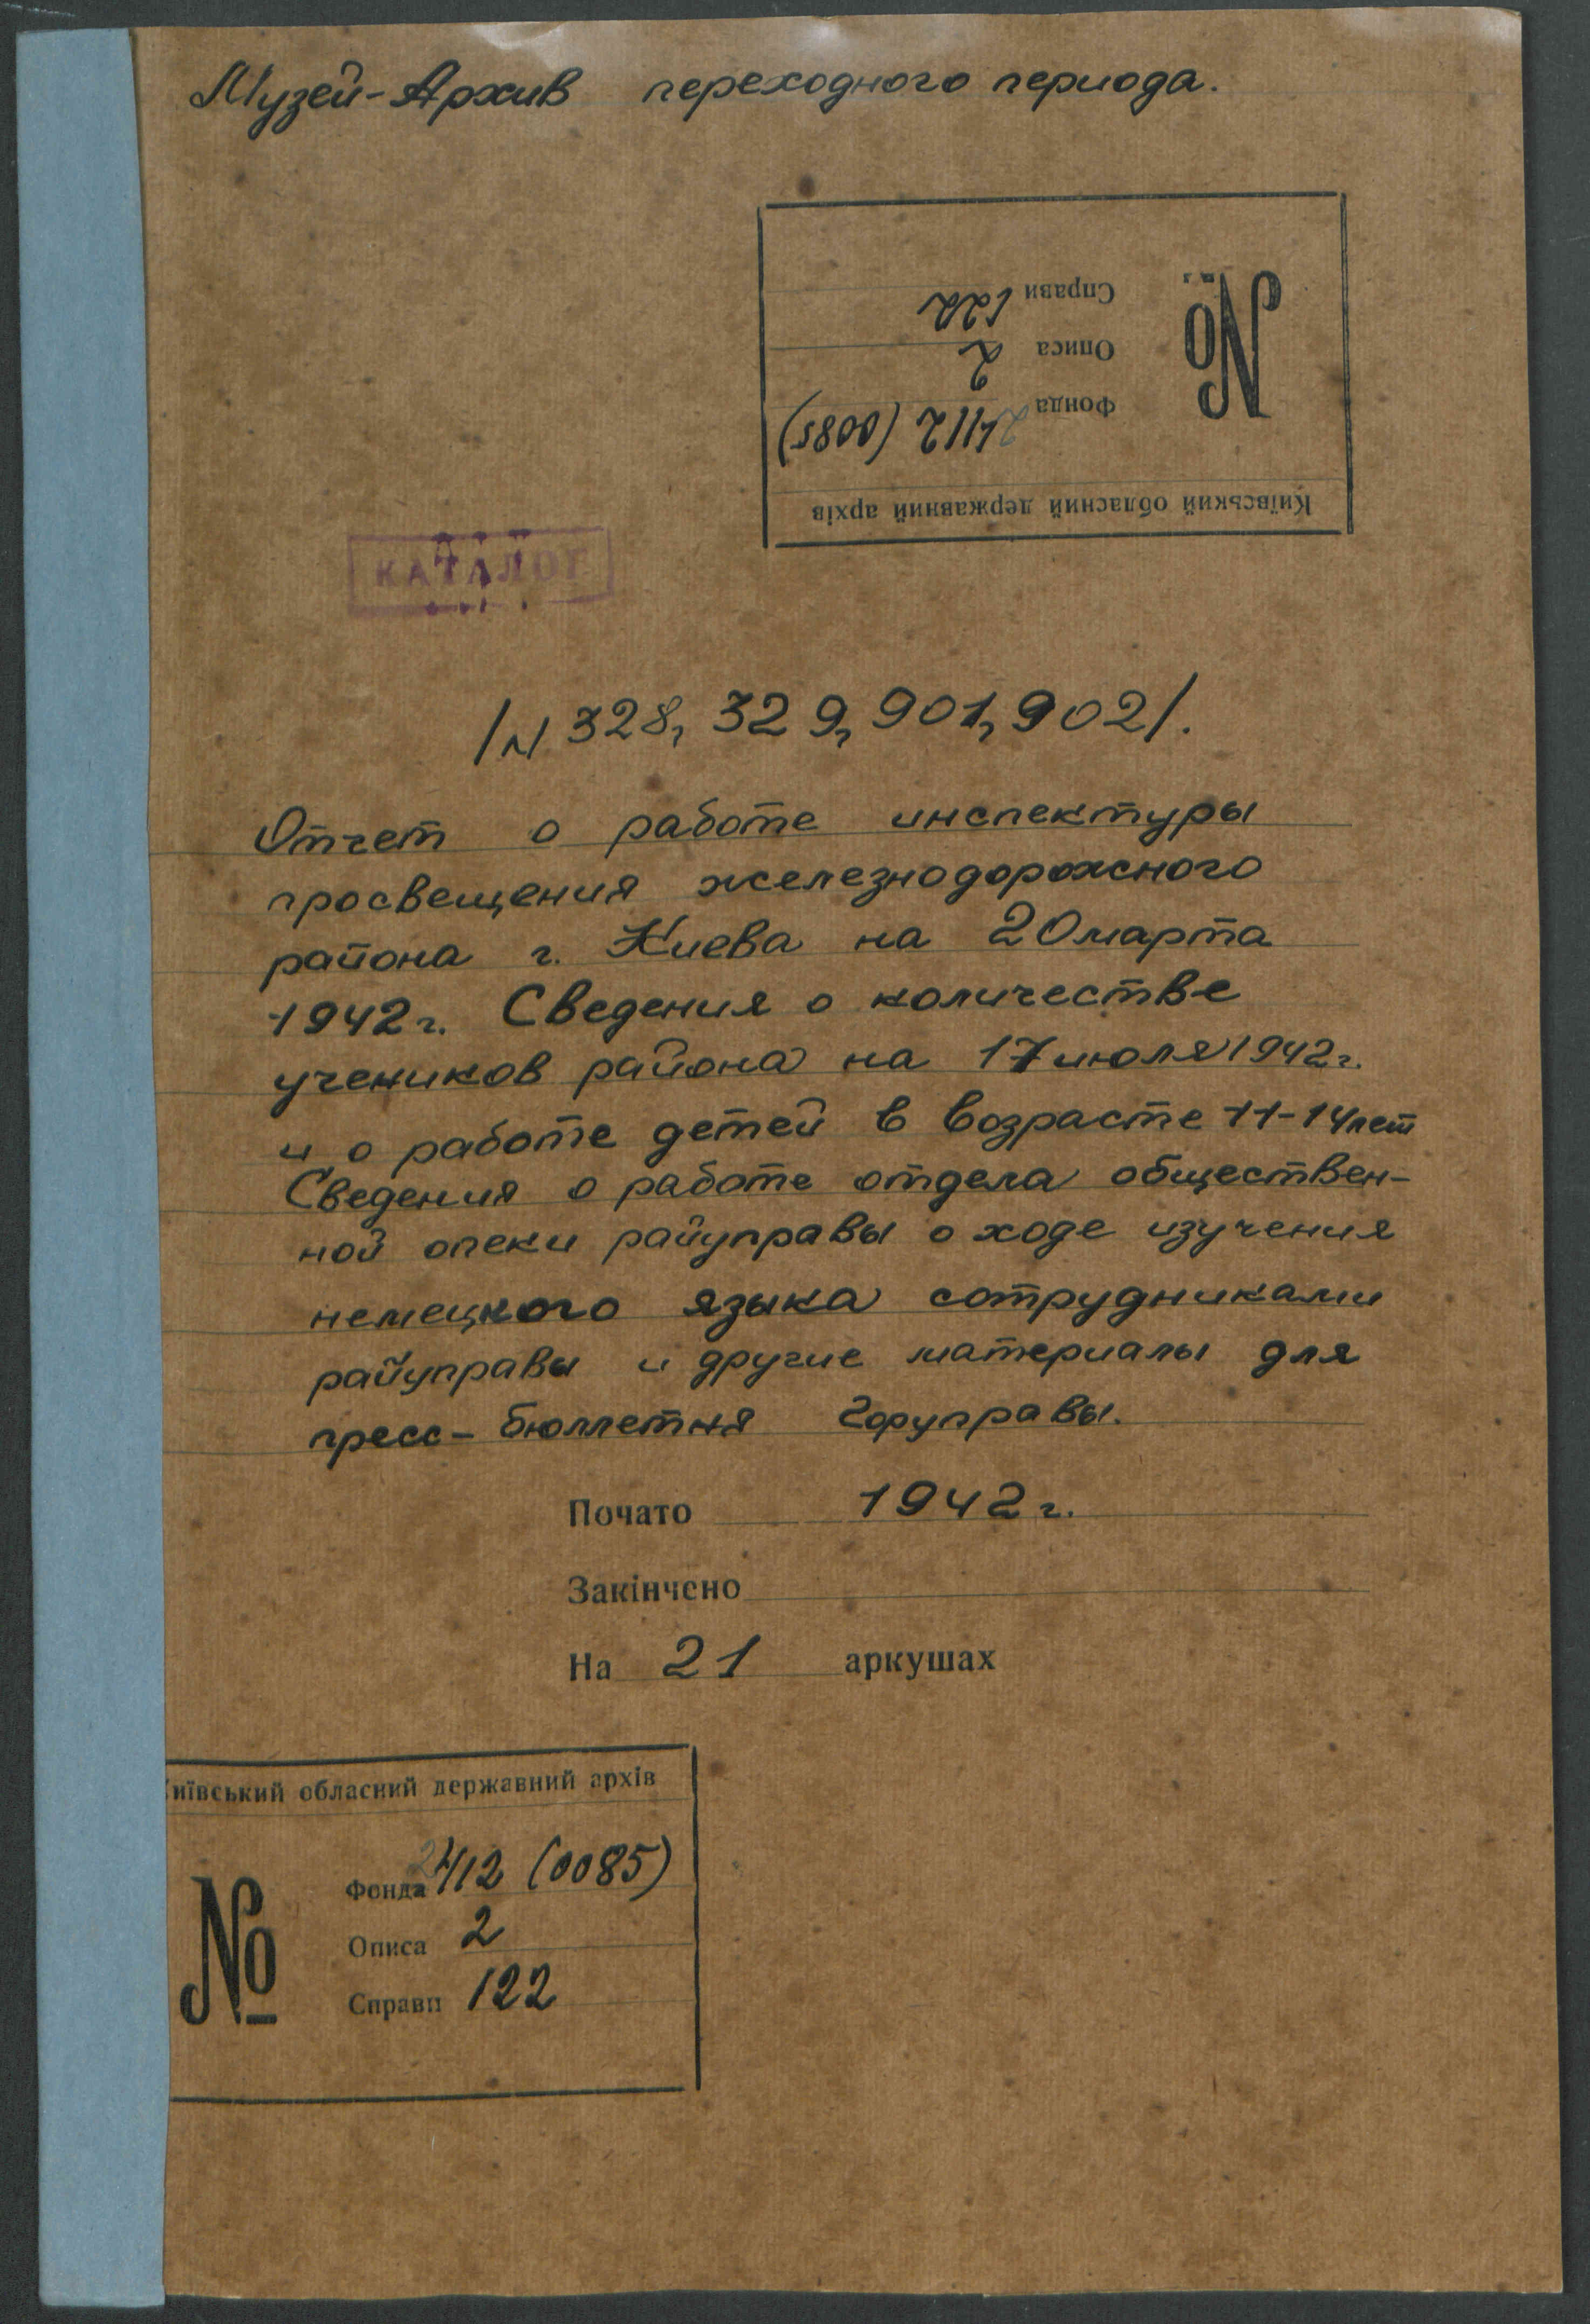 Музей-Архив переходного периода.
Київський обласний державний архів
№
Фонда 2412 (0085)
Описа 2
Справи 122
КАТАЛОГ
/N 328, 329, 901, 902/.
Отчет о работе инспектуры
просвещения железнодорожного
района г. Киева на 20 марта
1942 г. Сведения о количестве
учеников района на 17 июля 1942 г.
и о работе детей в возрасте 11-14 лет
Сведения о работе отдела обществен-
ной опеки райуправы о ходе изучения
немецкого языка сотрудниками
райуправы и другие материалы для
пресс-бюллетня Горуправы.
Почато 1942 г.
Закінчено
На 21 аркушах
Київський обласний державний архів
№
Фонда 2412 (0085)
Описа 2
Справи 122